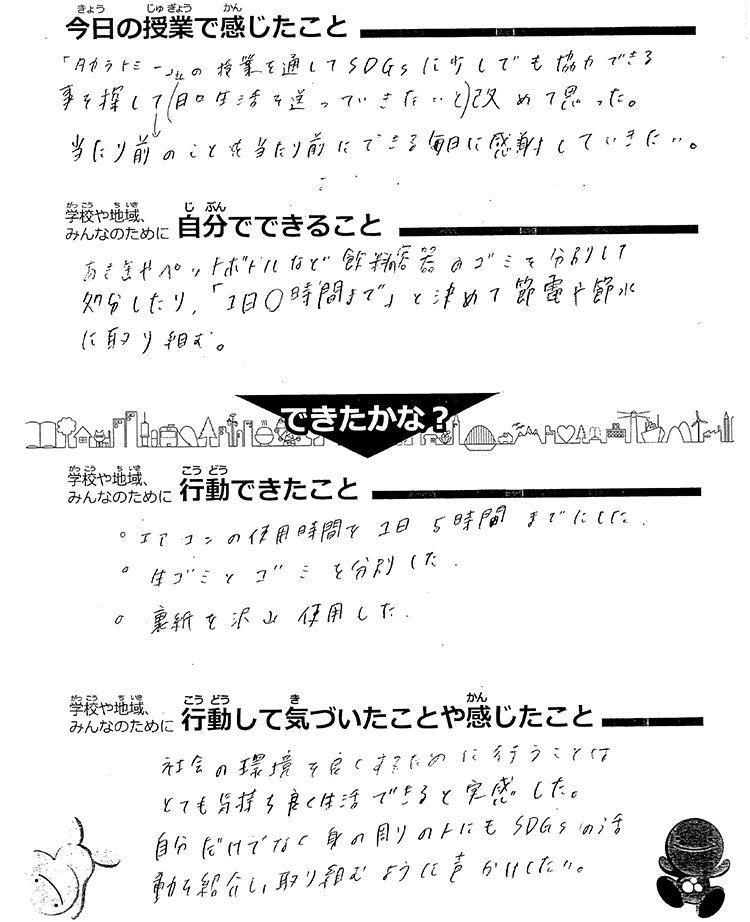 今日の授業で感じたこと
「タカラトミー」社の授業を通してSDGsに少しでも協力できる
事を探して(日々生活を送っていきたいと)改めて思った。
当たり前のことを当たり前にできる毎日に感謝していきたい。
学校や地域、みんなのために 自分でできること
あき缶やペットボトルなど飲料容器のゴミを分別して
処分したり、「1日〇時間まで」と決めて節電や節水
に取り組む。
できたかな?
学校や地域、みんなのために 行動できたこと
○ エアコンの使用時間を1日5時間までにした.
○ 生ゴミとゴミを分別した.
○ 裏紙を沢山使用した.
学校や地域、みんなのために 行動して気づいたことや感じたこと
社会の環境を良くするために行うことは
とても気持ち良く生活できると実感した。
自分だけでなく身の周りの人にもSDGsの活
動を紹介し、取り組むように声かけしたい。